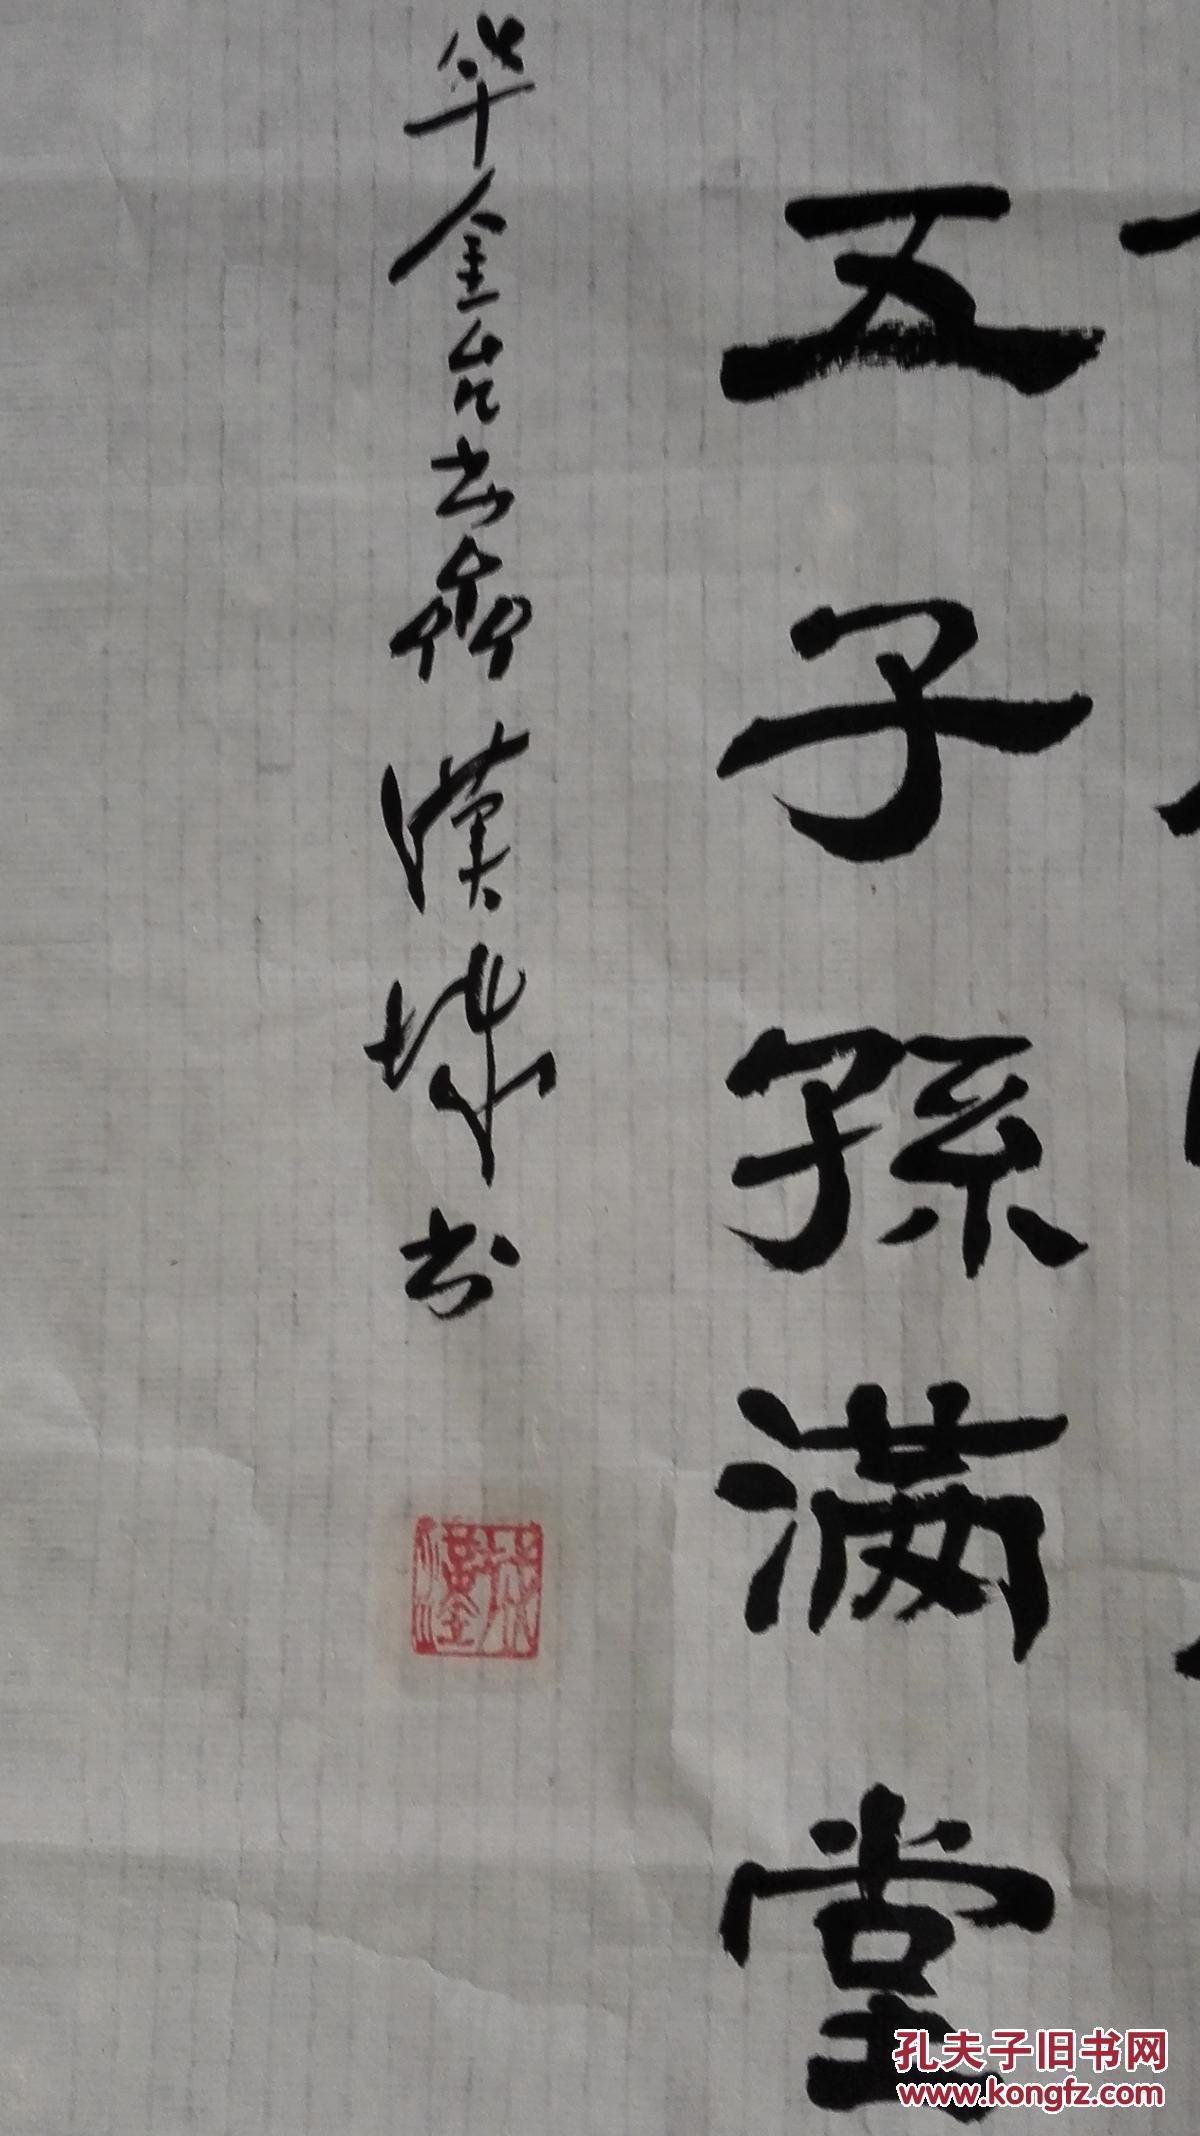 五子孫滿堂
华金台云斋漢城书
孔夫子旧书网
www.kongfz.com